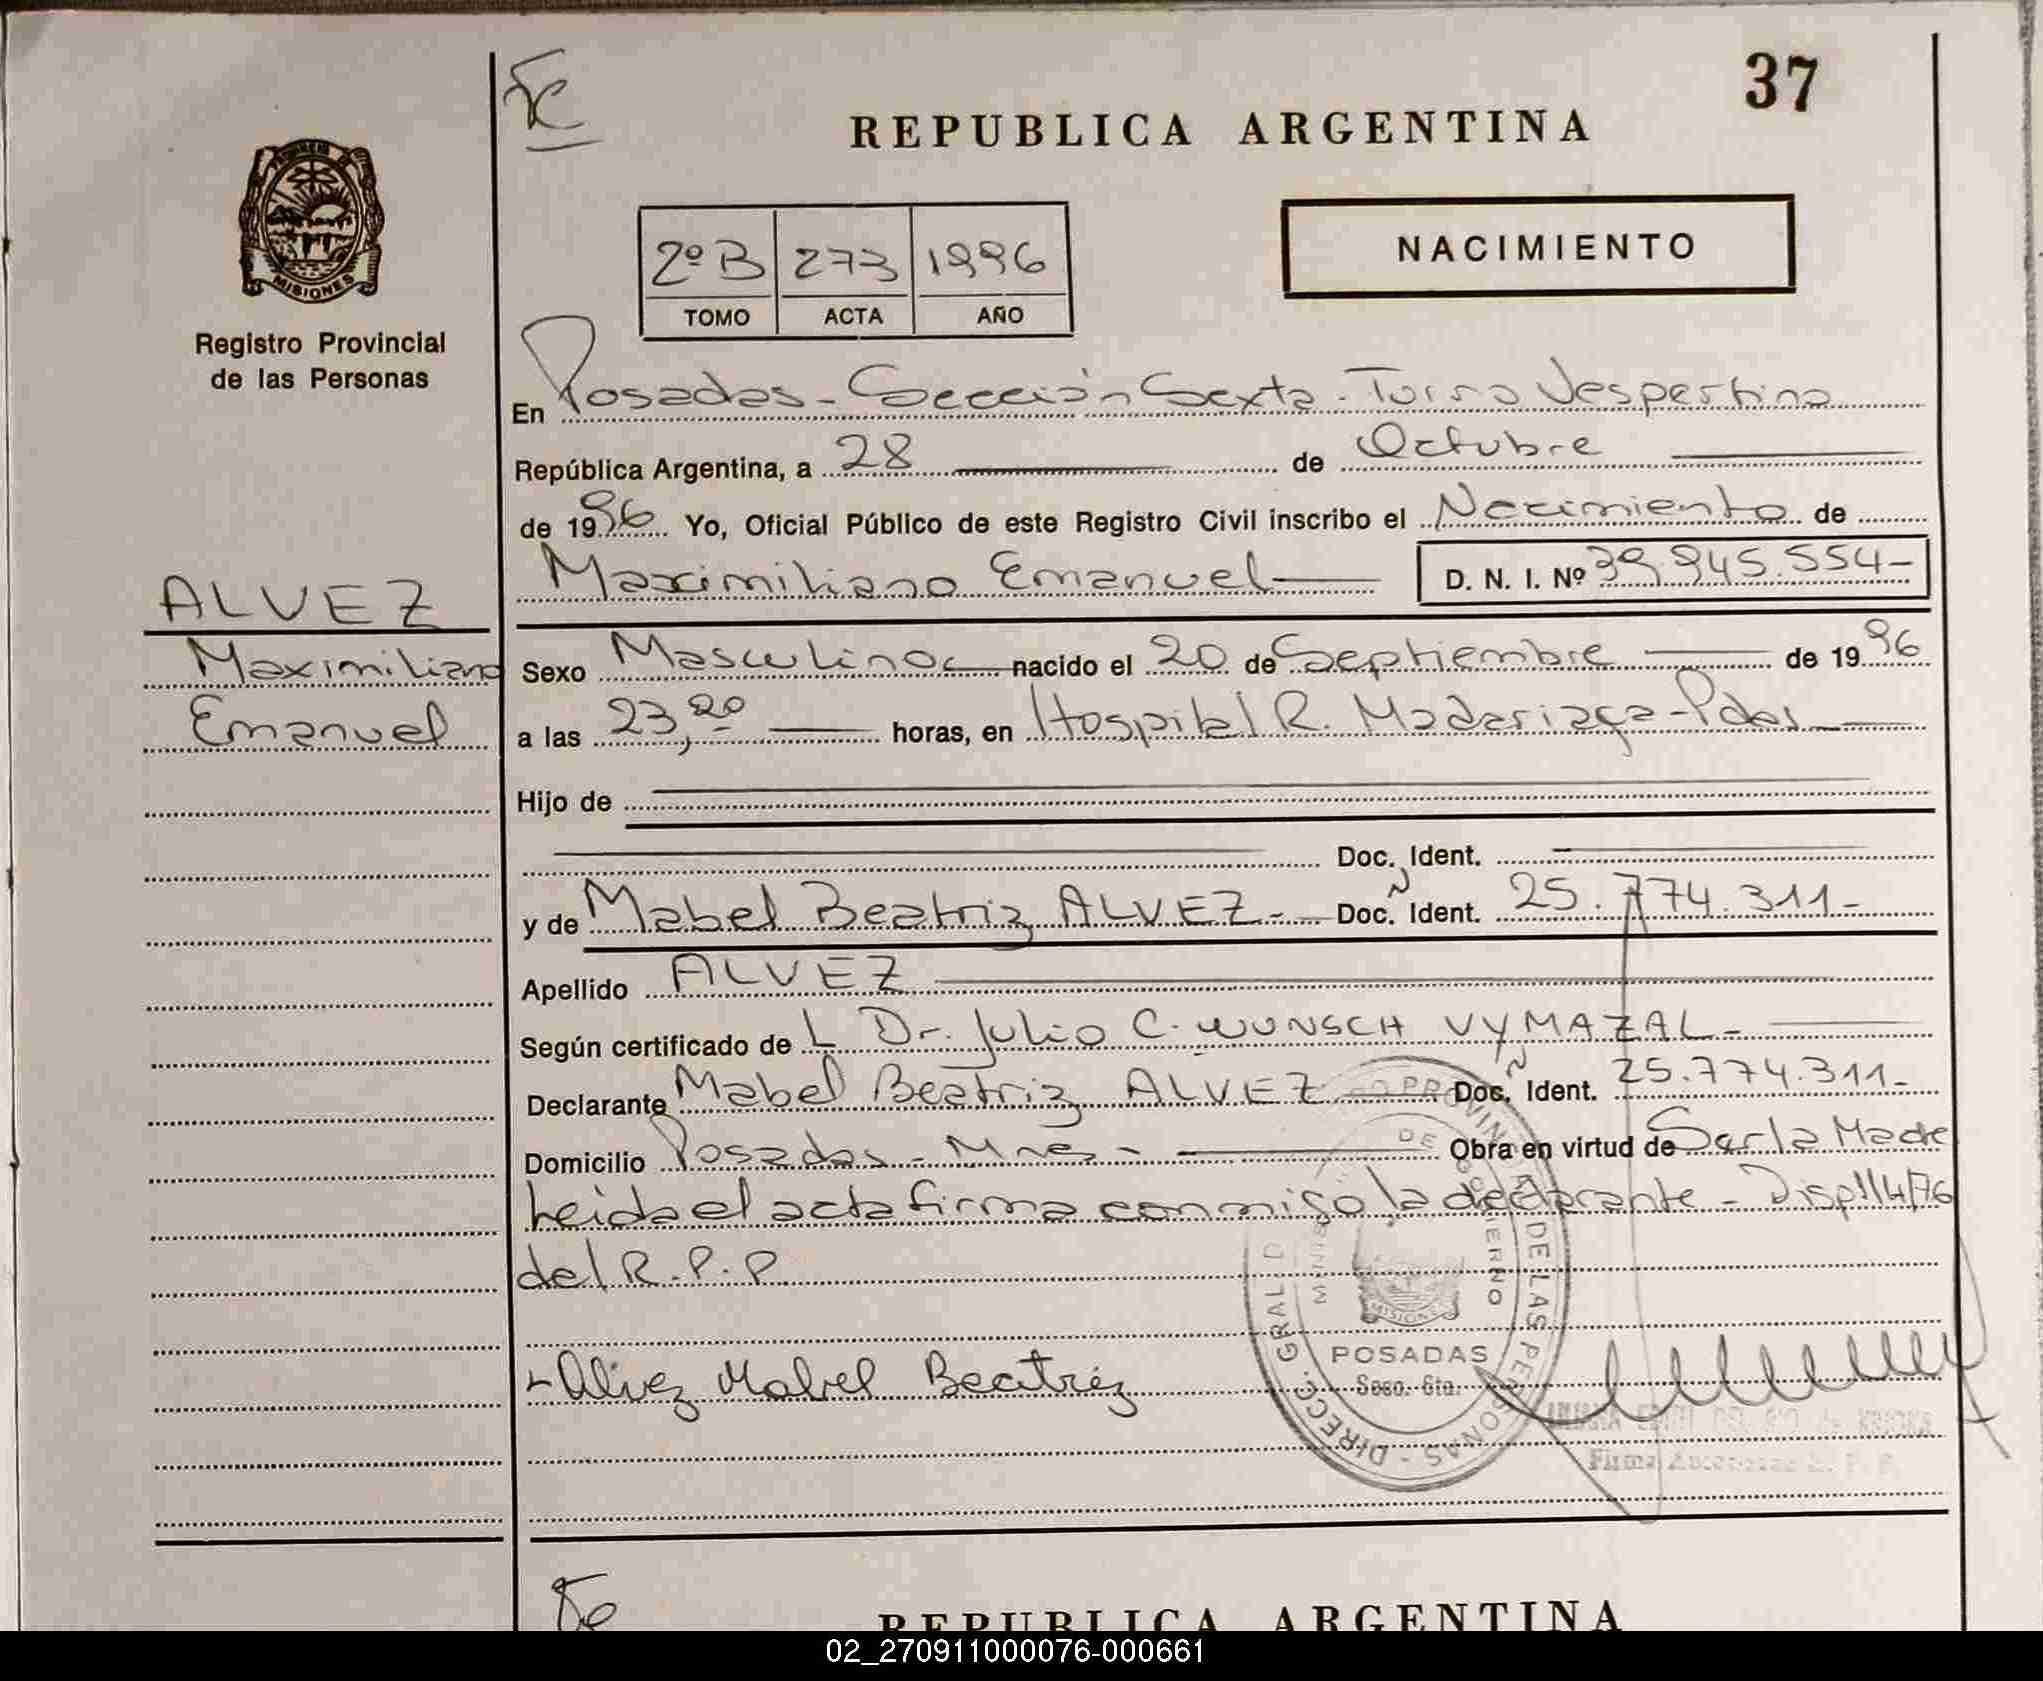 37
REPUBLICA ARGENTINA
NACIMIENTO
2º B 273 1996
TOMO ACTA AÑO
MISIONES
Registro Provincial
de las Personas
En Posadas - Sección Sexta - Turno Vespertino
República Argentina, a 28 de Octubre
de 1996 Yo, Oficial Público de este Registro Civil inscribo el Nacimiento de
Maximiliano Emanuel D. N. I. Nº 39.945.554-
ALVEZ
Maximiliano
Emanuel
Sexo Masculino nacido el 20 de Septiembre de 1996
a las 23,20 horas, en Hospital R. Madariaga - Pdas
Hijo de
Doc. Ident.
y de Mabel Beatriz ALVEZ- Doc. Ident. 25.774.311-
Apellido ALVEZ
Según certificado de L Dr. Julio C. WUNSCH VYMAZAL-
Declarante Mabel Beatriz ALVEZ Doc. Ident. 25.774.311-
Domicilio Posadas - Mnes - Obra en virtud de Ser la Madre
Leida el acta firma conmigo la declarante - Disp 114/76
del R.P.P
Alvez Mabel Beatriz
DIRECC. GRAL D DE LAS PERSONAS
POSADAS
Secc. 6ta.
REPUBLICA ARGENTINA
02_270911000076-000661